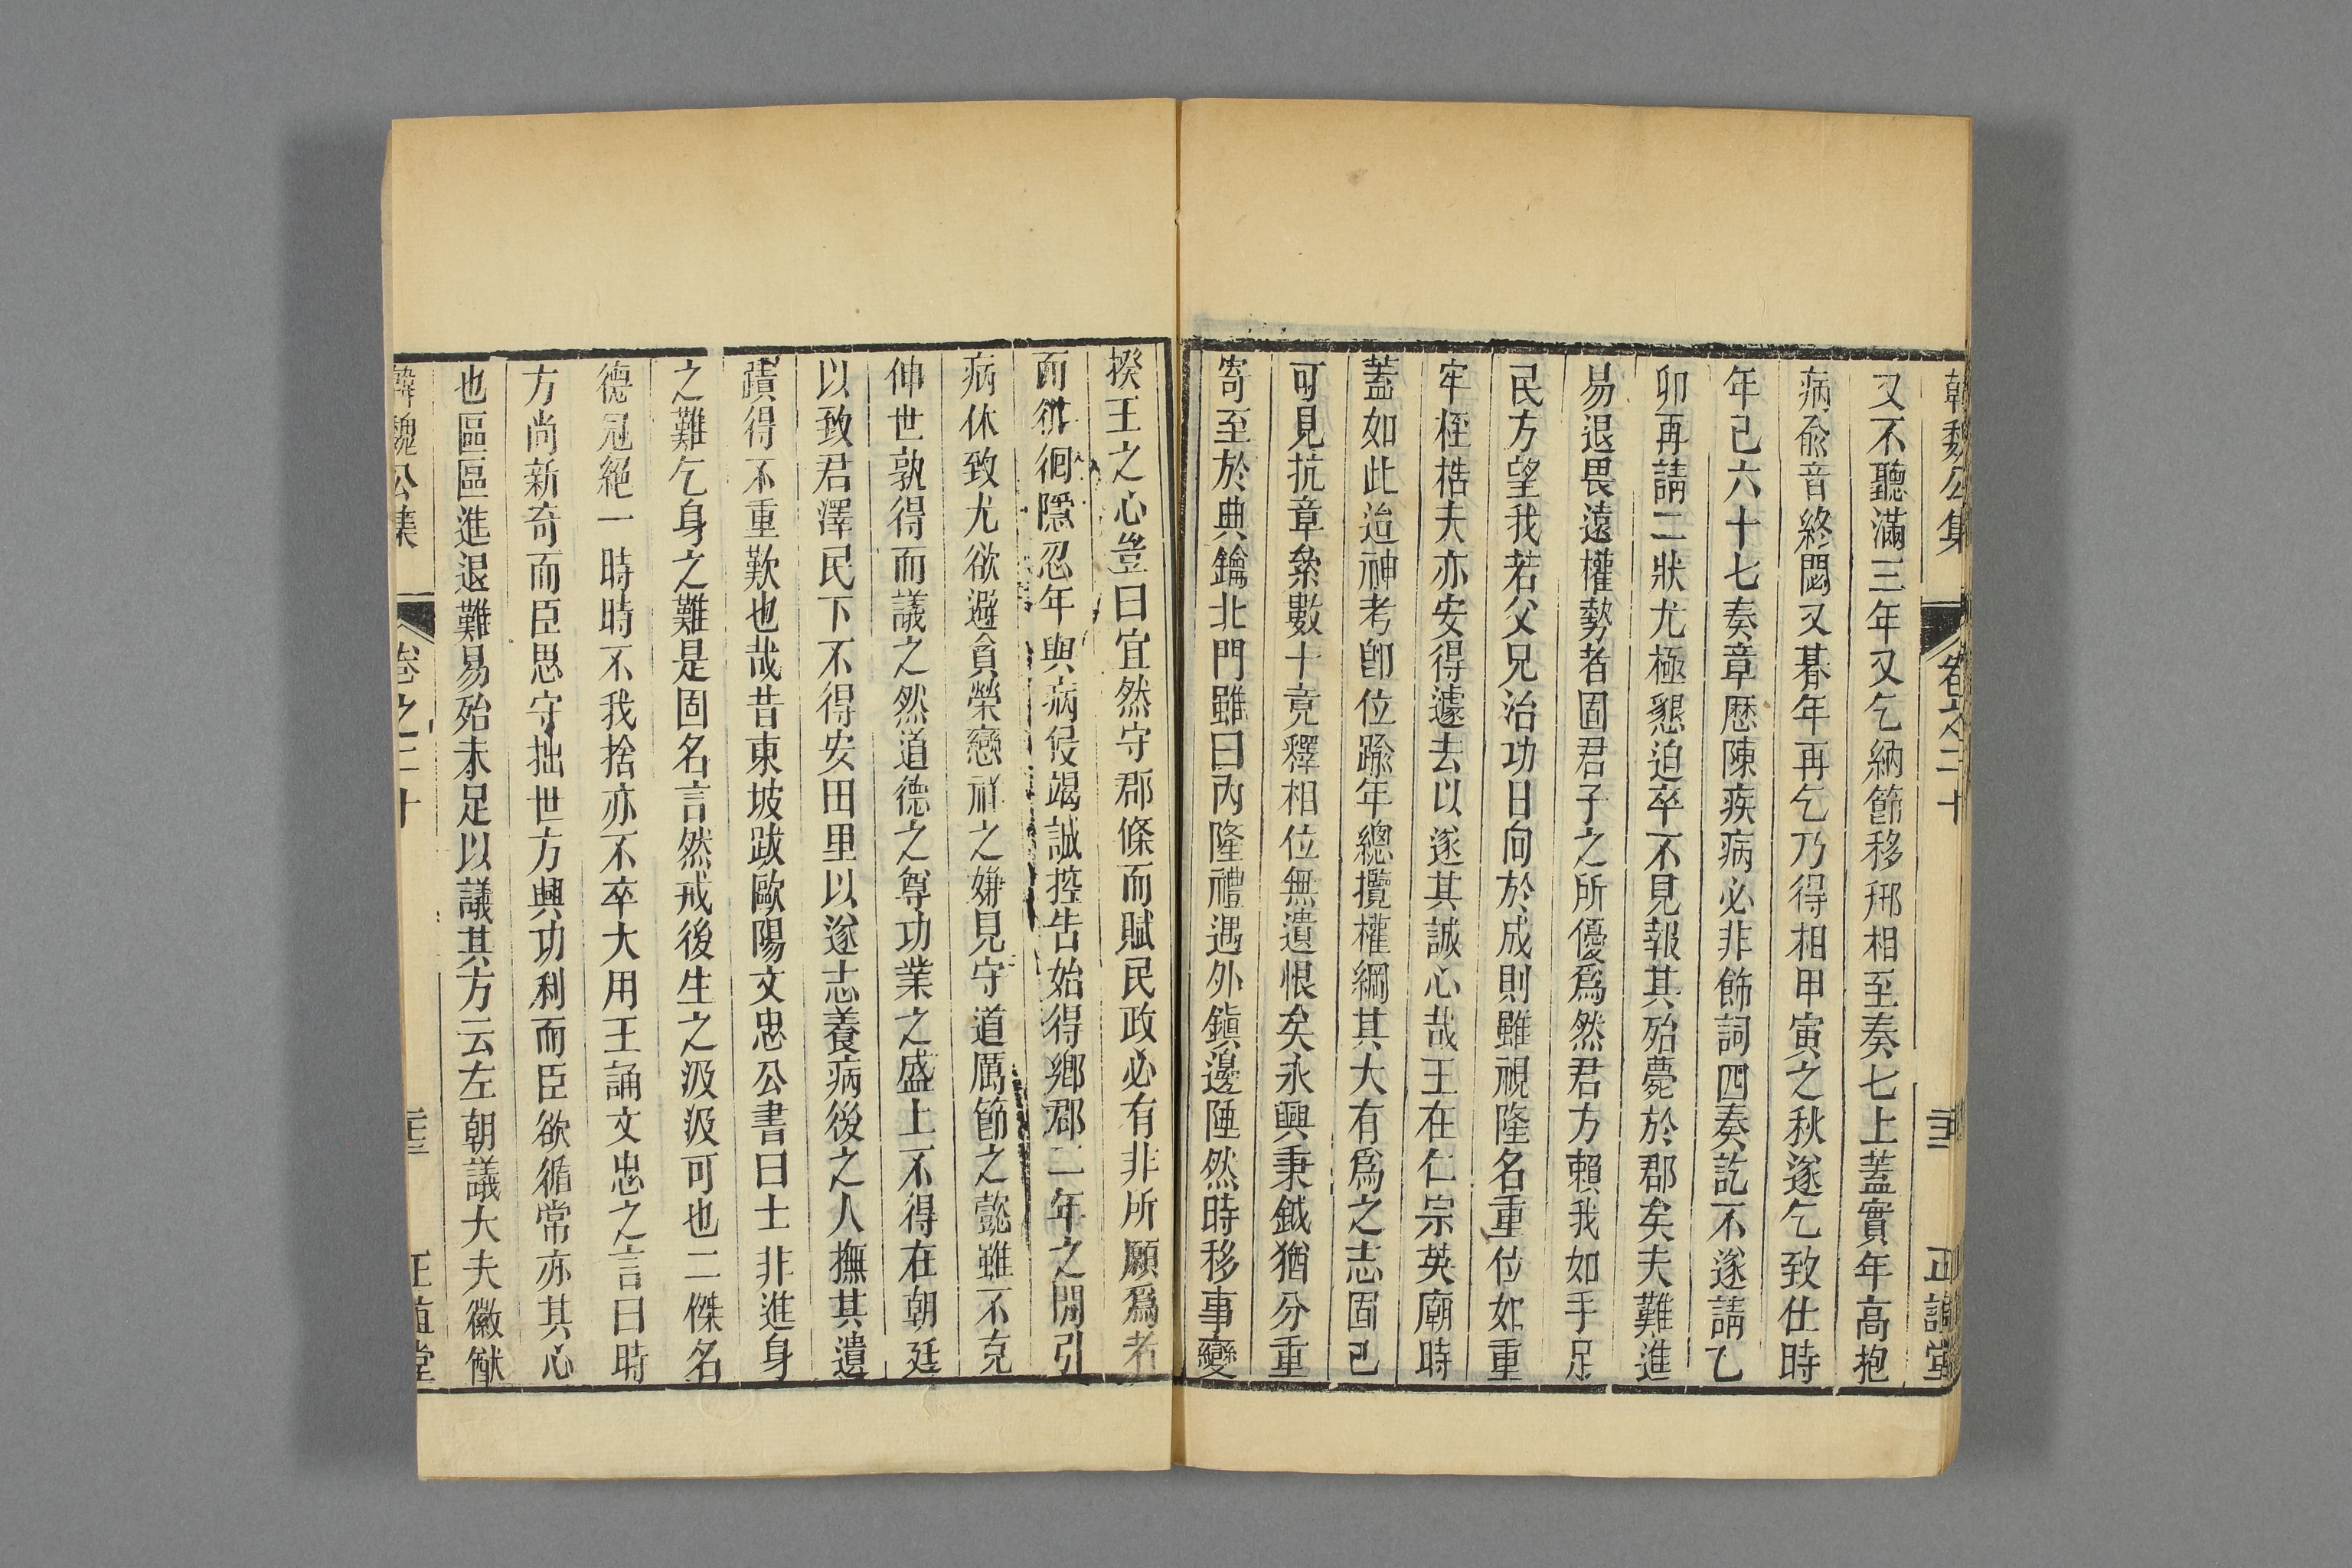 韓魏公集 卷之二十 三 正誼堂
又不聽滿三年又乞納節移邢相至奏七上蓋實年高抱
病兪音終閟又朞年再乞乃得相甲寅之秋遂乞致仕時
年已六十七奏章歷陳疾病必非飾詞四奏訖不遂請乙
卯再請二狀尤極懇迫卒不見報其殆薨於郡矣夫難進
易退畏遠權勢者固君子之所優爲然君方賴我如手足
民方望我若父兄治功日向於成則雖視隆名重位如重
牢桎梏夫亦安得遽去以遂其誠心哉王在仁宗英廟時
蓋如此迨神考卽位踰年總攬權綱其大有爲之志固已
可見抗章絫數十竟釋相位無遺恨矣永興秉鉞猶分重
寄至於典鑰北門雖曰內隆禮遇外鎭邊陲然時移事變
揆王之心豈曰宜然守郡條而賦民政必有非所願爲者
而徘徊隱忍年與病侵竭誠控告始得鄉郡二年之間引
病休致尤欲避貪榮戀祿之嫌見守道厲節之懿雖不克
伸世孰得而議之然道德之尊功業之盛上不得在朝廷
以致君澤民下不得安田里以遂志養病後之人撫其遺
蹟得不重歎也哉昔東坡跋歐陽文忠公書曰士非進身
之難乞身之難是固名言然戒後生之汲汲可也二傑名
德冠絕一時時不我捨亦不卒大用王誦文忠之言曰時
方尚新奇而臣思守拙世方興功利而臣欲循常亦其心
也區區進退難易殆未足以議其方云左朝議大夫徽猷
韓魏公集 卷之二十 正誼堂